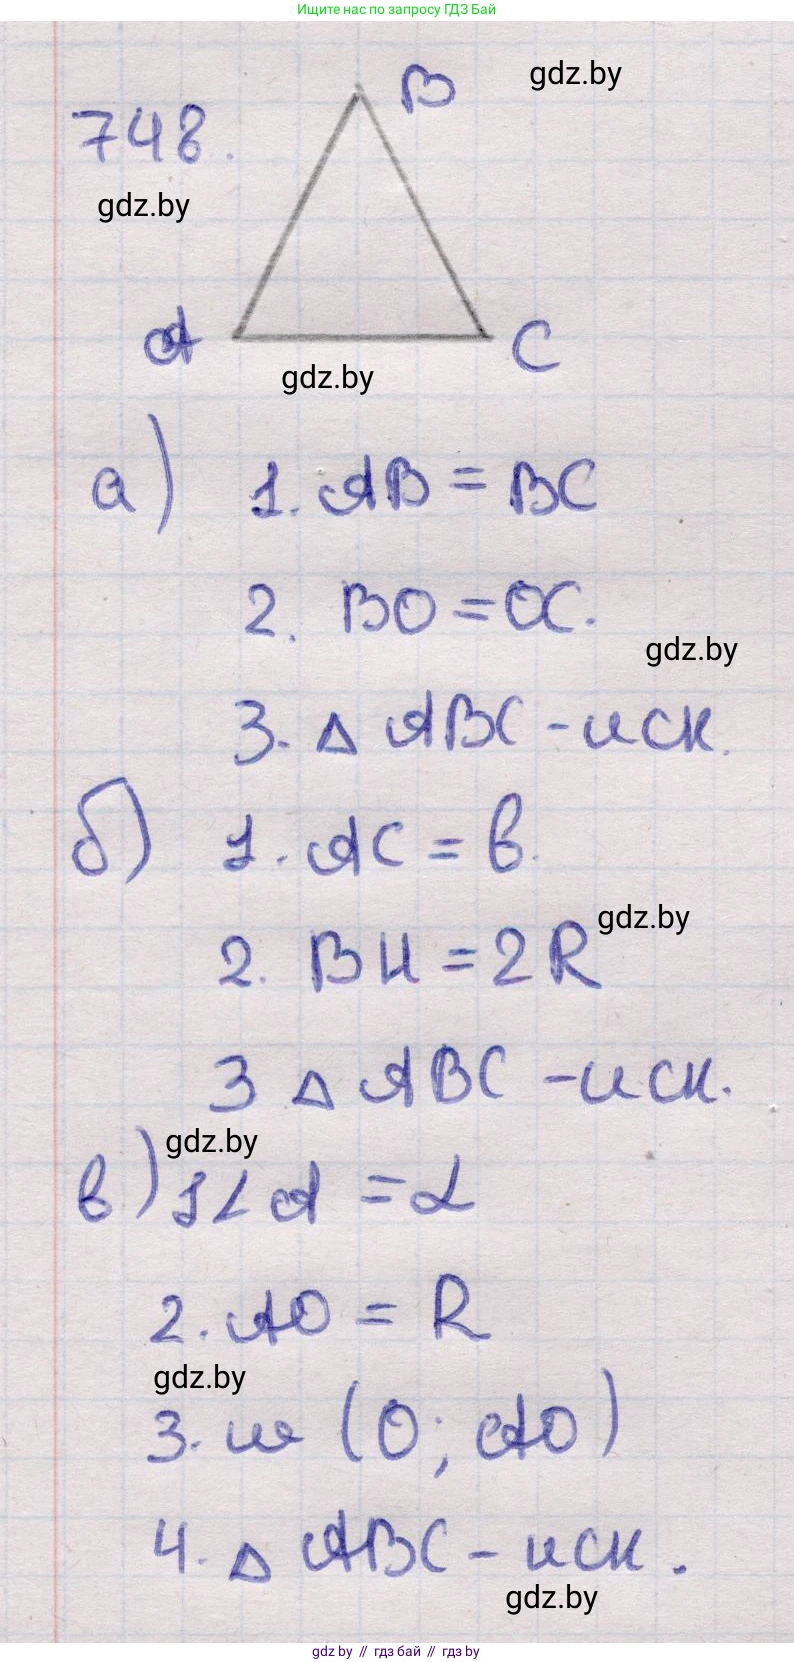 Ищите нас по запросу ГДЗ Бай
B
gdz.by
748.
gdz.by
A
C
gdz.by
а) 1. AB = BC
2. BO = OC.
gdz.by
3. △ ABC - иск.
б) 1. AC = b.
gdz.by
2. BH = 2R
3 △ ABC - иск.
gdz.by
в) 1 ∠ A = α
2. AO = R
gdz.by
3. ω (O; AO)
4. △ ABC - иск.
gdz.by
gdz.by // гдз бай // гдз by